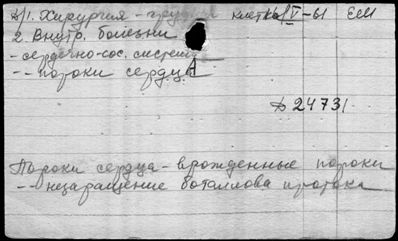 1. Хирургия - грудн клетка V-61
2. Внутр. болезни
- сердечно-сос. систем
-- пороки сердца
24731
Пороки сердца - врожденные пороки
-- незаращение боталлова протока